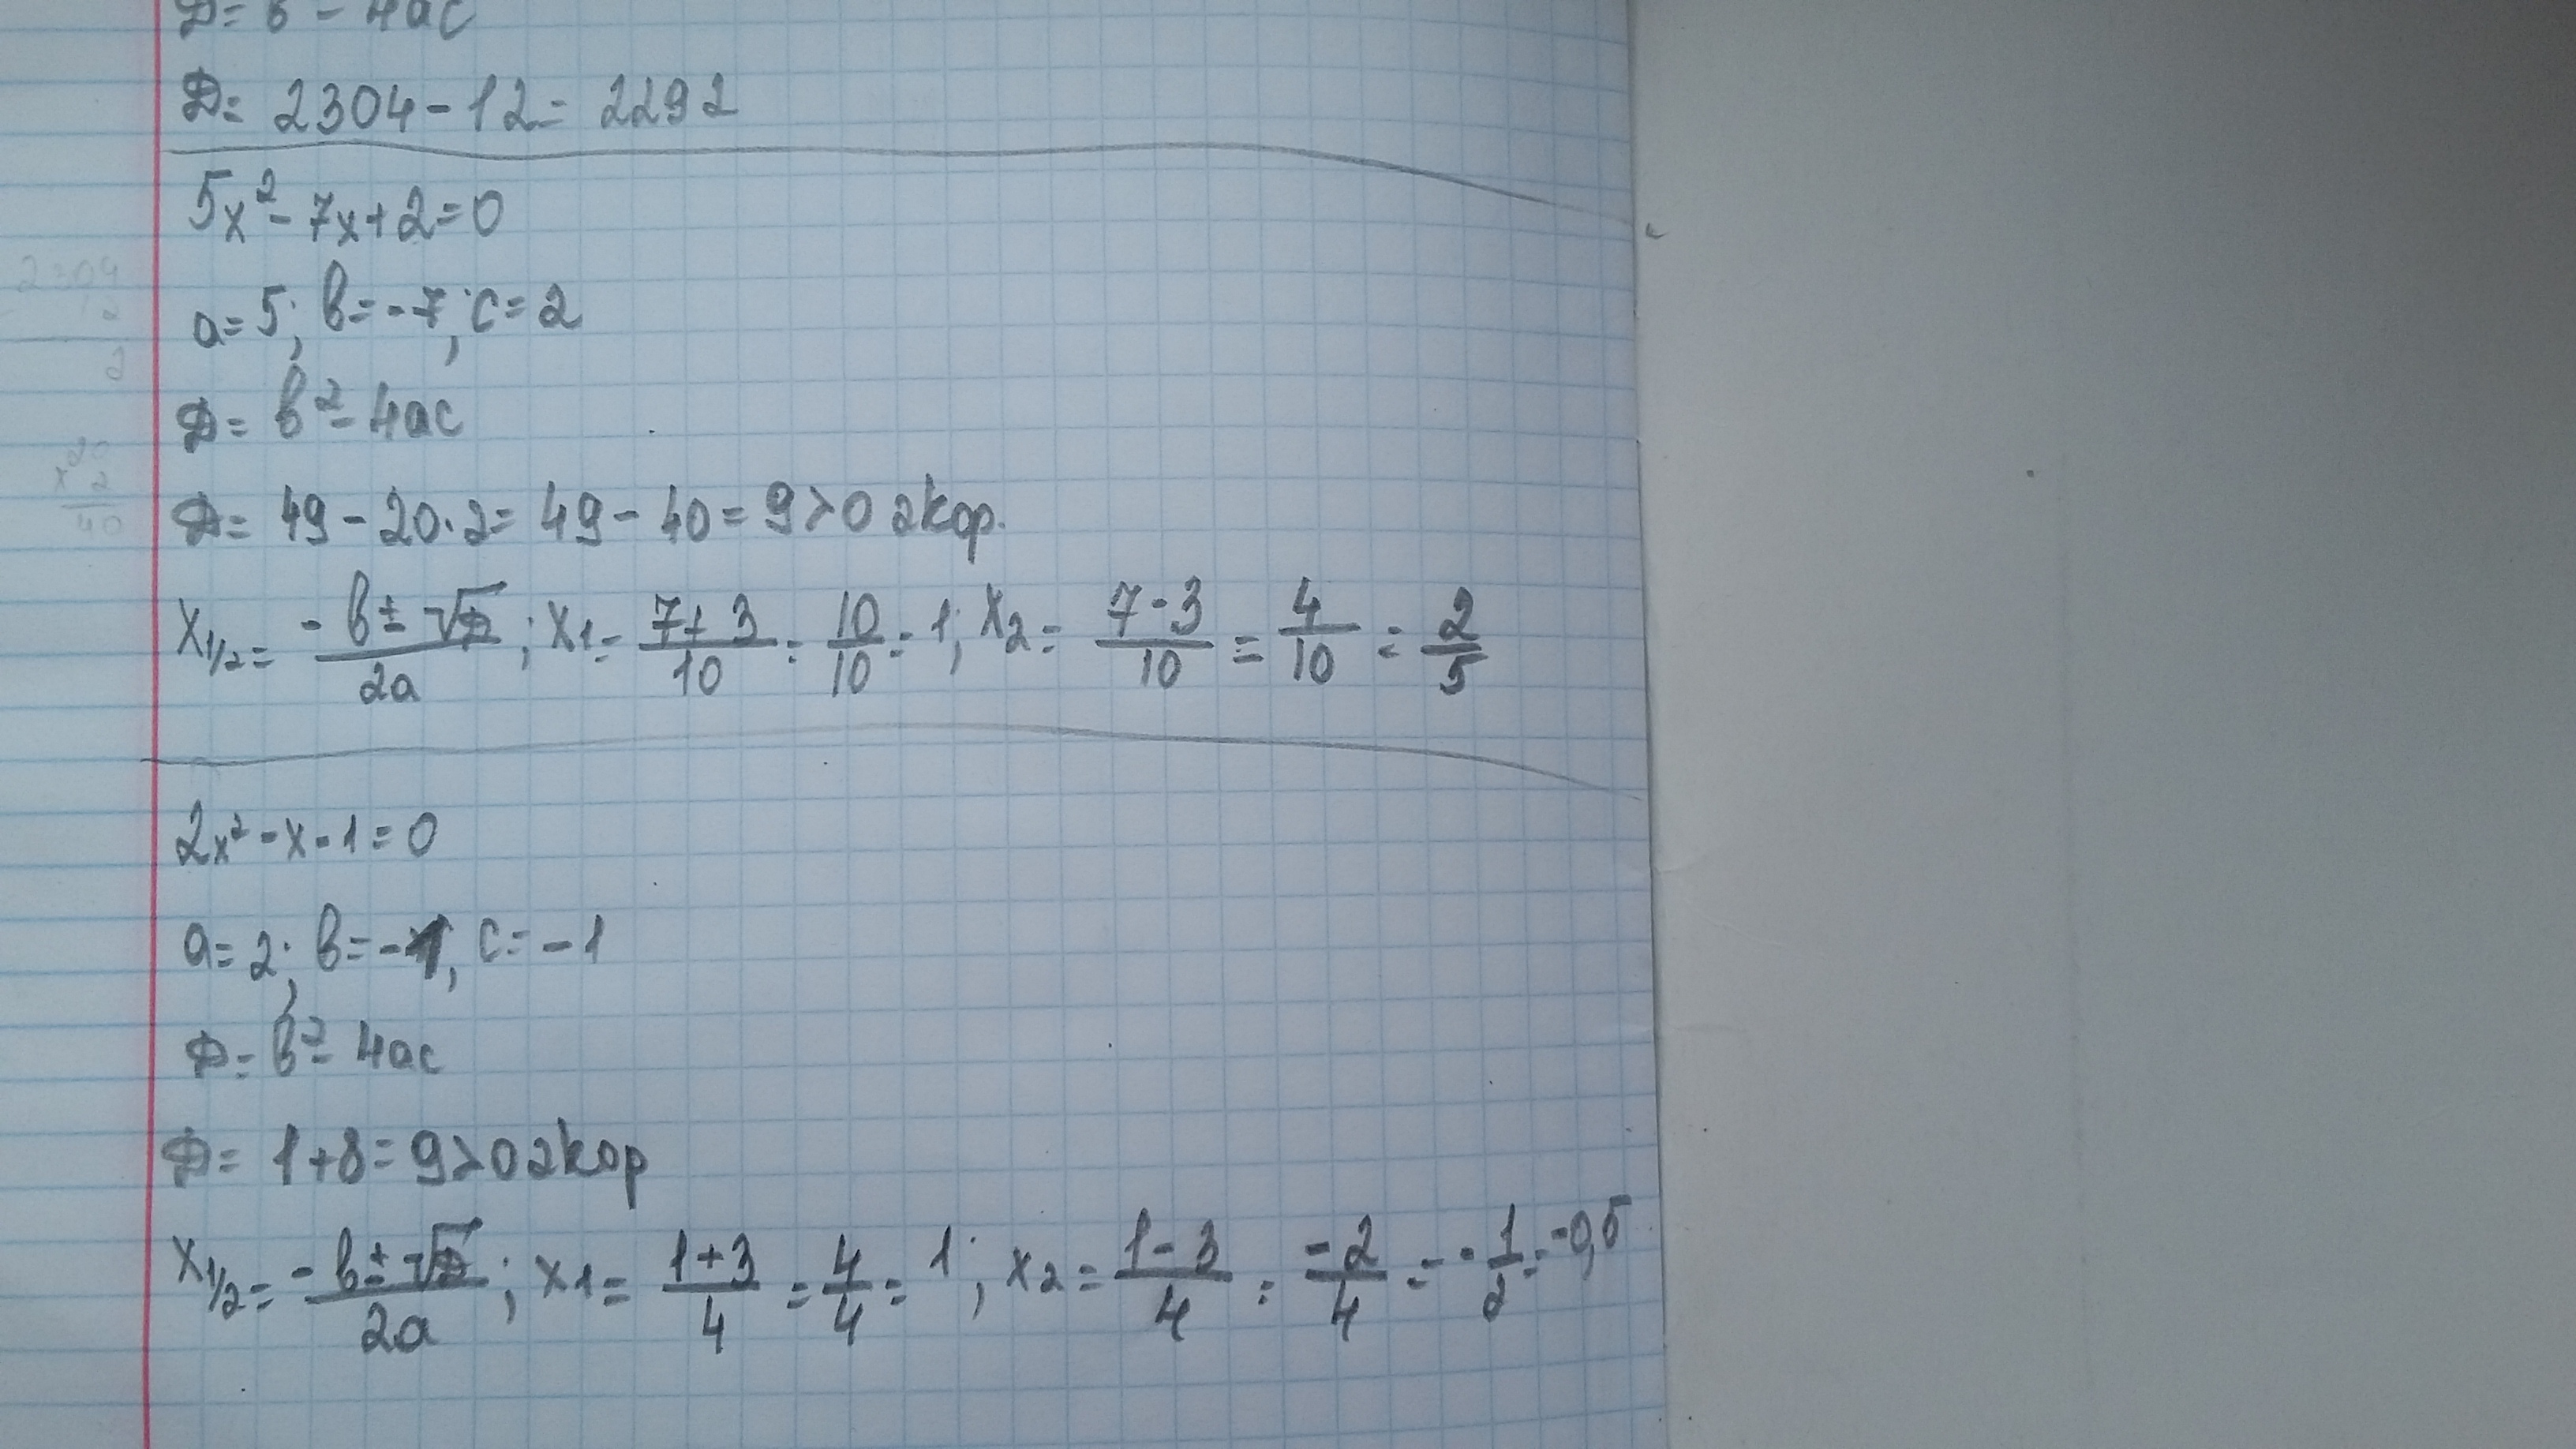 D = b² - 4ac
D = 2304 - 12 = 2292
5x² - 7x + 2 = 0
a = 5; b = -7; c = 2
D = b² - 4ac
D = 49 - 20·2 = 49 - 40 = 9 > 0 2 кор.
x1/2 = (-b ± √D)/2a; x1 = (7+3)/10 = 10/10 = 1; x2 = (7-3)/10 = 4/10 = 2/5
2x² - x - 1 = 0
a = 2; b = -1; c = -1
D = b² - 4ac
D = 1 + 8 = 9 > 0 2 кор
x1/2 = (-b ± √D)/2a; x1 = (1+3)/4 = 4/4 = 1; x2 = (1-3)/4 = -2/4 = -1/2 = -0,5